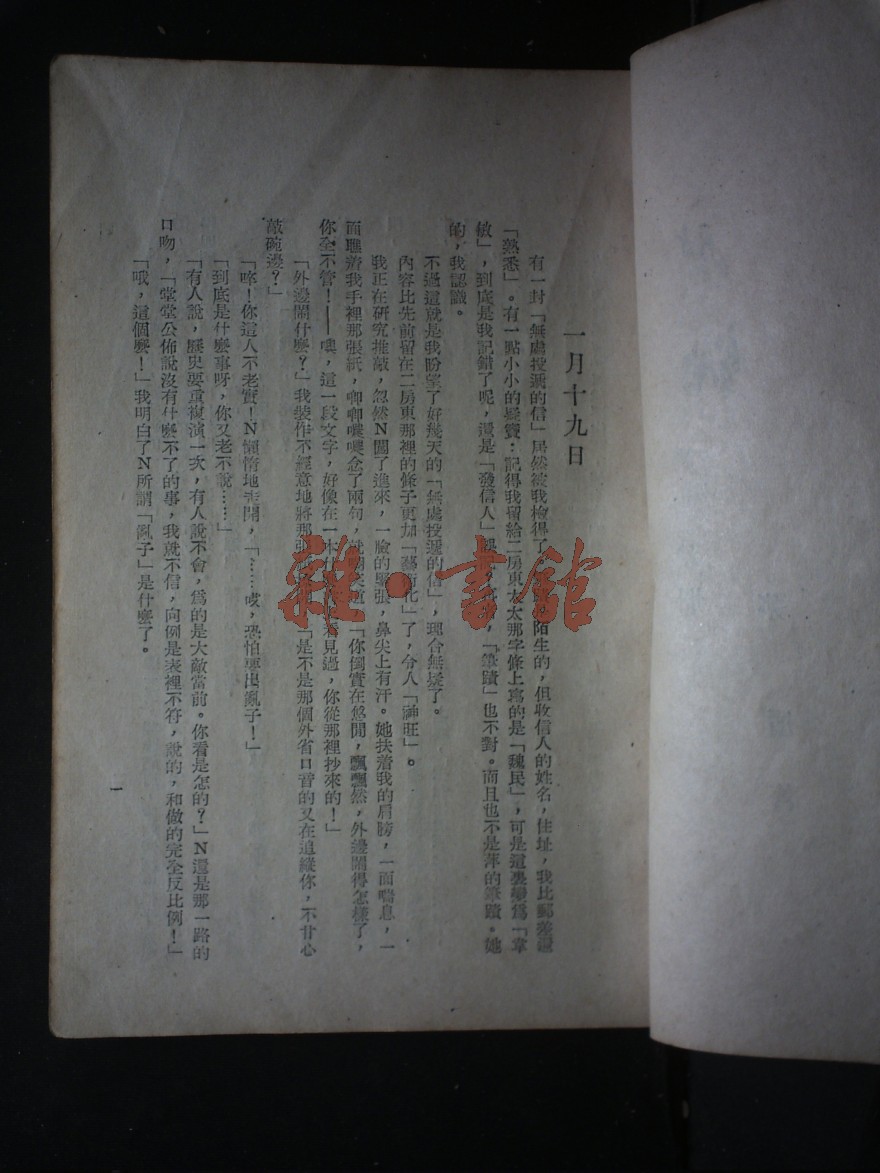 一月十九日
有一封「無處投遞的信」居然被我檢得了。陌生的，但收信人的姓名，住址，我比郵差還
「熟悉」。有一點小小的變寶：記得我留給二房東太太那字條上寫的是「魏民」，可是這裏變爲「韋
敏」，到底是我記錯了呢，還是「發信人」，「筆蹟」也不對。而且也不是萍的筆蹟。她
的，我認識。
不過這就是我盼望了好幾天的「無處投遞的信」，理合無疑了。
內容比先前留在二房東那裡的條子更加「藝術化」了，令人「神旺」。
我正在研究推敲，忽然N闖了進來，一臉的緊張，鼻尖上有汗。她扶着我的肩膀，一面喘息，一
面瞧着我手裡那張紙，唧唧噥噥念了兩句，就道：「你倒實在悠閒，飄飄然，外邊鬧得怎樣了，
你全不管！——噢，這一段文字，好像在一本什看見過，你從那裡抄來的！」
「外邊鬧什麼？」我裝作不經意地將那張「是不是那個外省口音的又在追縱你，不甘心
敲碗邊？」
「啐！你這人不老實！N懶惰地走開，「……哎，恐怕要出亂子！」
「到底是什麼事呀，你又老不說……」
「有人說，歷史要重複演一次，有人說不會，爲的是大敵當前。你看是怎的？」N還是那一路的
口吻，「堂堂公佈說沒有什麼不了的事，我就不信，向例是表裡不符，說的，和做的完全反比例！」
「哦，這個麼！」我明白了N所謂「亂子」是什麼了。
一
雜·書館